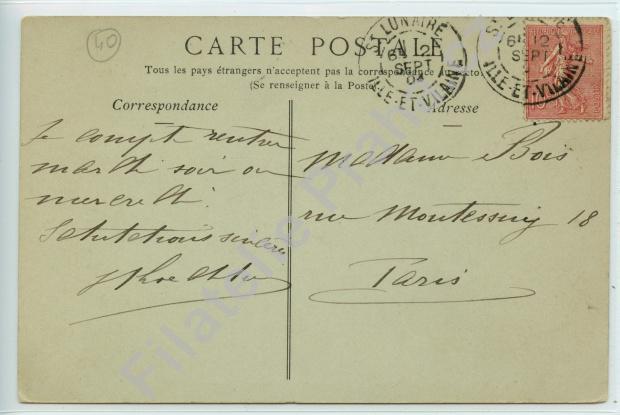 40
CARTE POSTALE
Tous les pays étrangers n'acceptent pas la correspondance au recto
(Se renseigner à la Poste)
Correspondance
Adresse
ST LUNAIRE
12
SEPT
ILLE-ET-VILAINE
12
SEPT
ILLE-ET-VILAINE
Je compte rentrer
mardi soir ou
mercredi.
Salutations
Madame Bois
rue Montessuy 18
Paris
Filatelie Praha